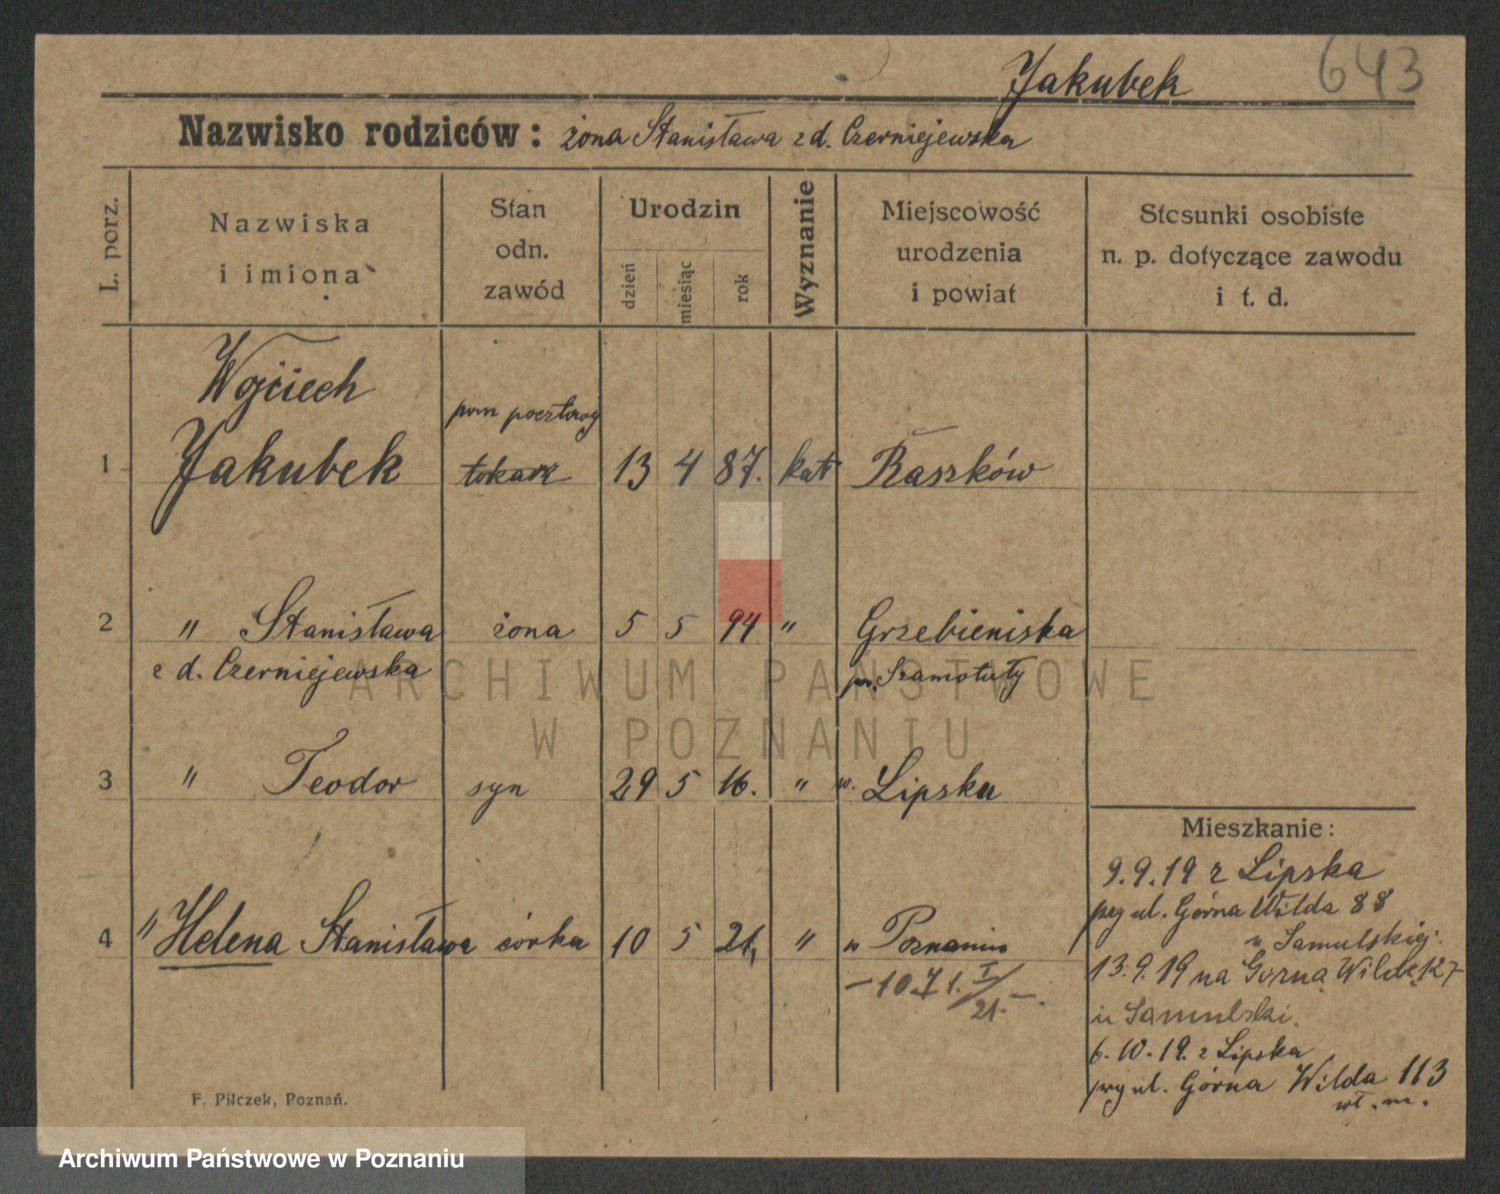 Jakubek 643
Nazwisko rodziców: żona Stanisława z d. Czerniejewska
L. porz.
Nazwiska
i imiona
Stan
odn.
zawód
Urodzin
dzień
miesiąc
rok
Wyznanie
Miejscowość
urodzenia
i powiat
Stosunki osobiste
n. p. dotyczące zawodu
i t. d.
Wojciech
pom pocztowy
1 Jakubek tokarz 13 4 87. kat Raszków
2 " Stanisława żona 5 5 94 " Grzebieniska
z d. Czerniejewska pw. Szamotuły
3 " Teodor syn 29 5 16. " w. Lipsku
4 " Helena Stanisława córka 10 5 21, " w Poznaniu
Mieszkanie:
9.9.19 z Lipska
przy ul. Górna Wilda 88
u Samulskiej.
13.9.19 na Górną Wildę 127
u Samulski.
6.10.19. z Lipska
przy ul. Górna Wilda 113
wł. m.
F. Pilczek, Poznań.
ARCHIWUM PAŃSTWOWE
W POZNANIU
Archiwum Państwowe w Poznaniu